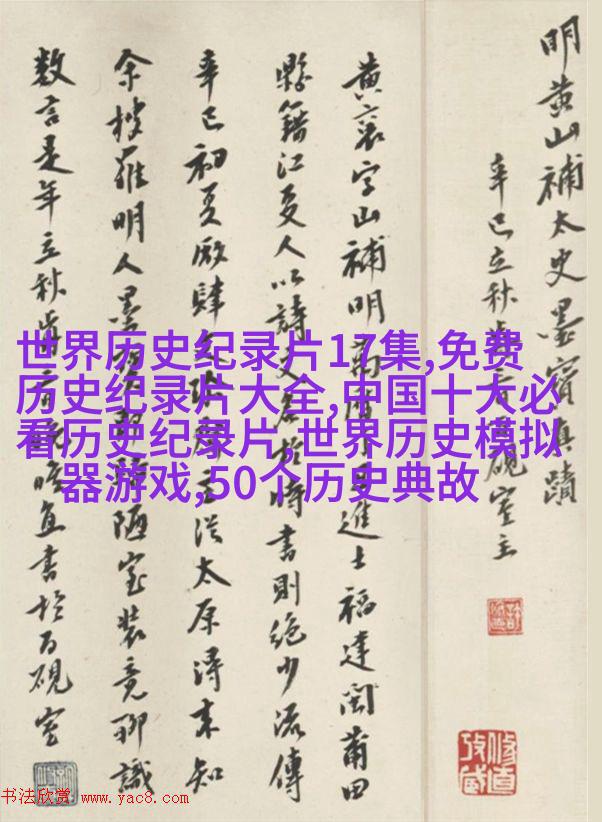 明黄山補太史墨寶真蹟
辛巳立秋硯室主
黄襄字山補明進士福建閩莆田
縣籍江夏人以詩文名於時書則絶少流傳
辛巳初夏廠肆主從太原潯來知
余搜羅明人墨陋室裝竟聊識
數言是年立秋書於百硯室
世界历史纪录片17集,免费
历史纪录片大全,中国十大必
看历史纪录片,世界历史模拟
器游戏,50个历史典故
书法欣赏 www.yac8.com